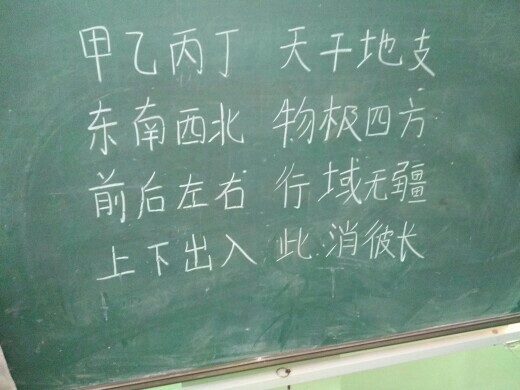 甲乙丙丁 天干地支
东南西北 物极四方
前后左右 行域无疆
上下出入 此消彼长